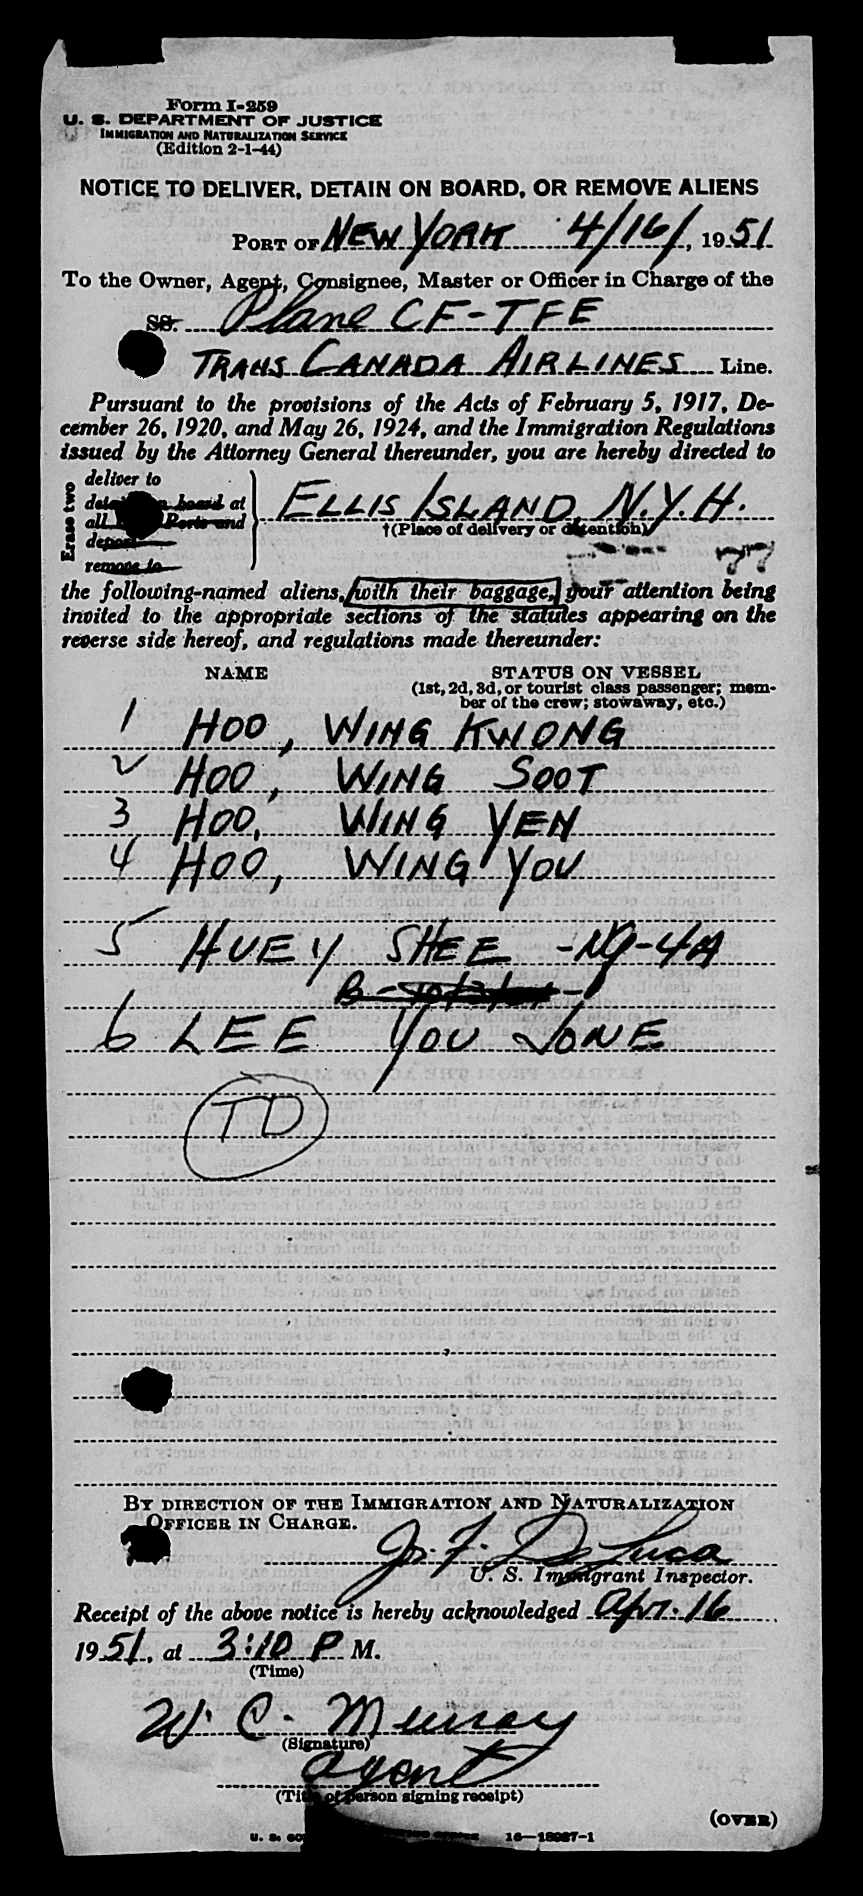 Form I-259
U. S. DEPARTMENT OF JUSTICE
IMMIGRATION AND NATURALIZATION SERVICE
(Edition 2-1-44)
NOTICE TO DELIVER, DETAIN ON BOARD, OR REMOVE ALIENS
PORT OF NEW YORK 4/16/, 1951
To the Owner, Agent, Consignee, Master or Officer in Charge of the
SS. Plane CF-TFE
TRANS CANADA AIRLINES Line.
Pursuant to the provisions of the Acts of February 5, 1917, De-
cember 26, 1920, and May 26, 1924, and the Immigration Regulations
issued by the Attorney General thereunder, you are hereby directed to
Erase two
deliver to
detain on board at
all Ports and
deport
remove to
ELLIS ISLAND, N.Y.H.
†(Place of delivery or detention)
the following-named aliens, with their baggage, your attention being
invited to the appropriate sections of the statutes appearing on the
reverse side hereof, and regulations made thereunder:
NAME STATUS ON VESSEL
(1st, 2d, 3d, or tourist class passenger; mem-
ber of the crew; stowaway, etc.)
1 HOO, WING KWONG
2 HOO, WING SOOT
3 HOO, WING YEN
4 HOO, WING YOU
5 HUEY SHEE -NQ-4A
6 LEE YOU JONE
TD
BY DIRECTION OF THE IMMIGRATION AND NATURALIZATION
OFFICER IN CHARGE.
Jos. F. De Luca
U. S. Immigrant Inspector.
Receipt of the above notice is hereby acknowledged Apr. 16
1951, at 3:10 P M.
(Time)
W. C. Murray
(Signature)
Agent
(Title of person signing receipt)
(OVER)
U. S. 16—18987-1